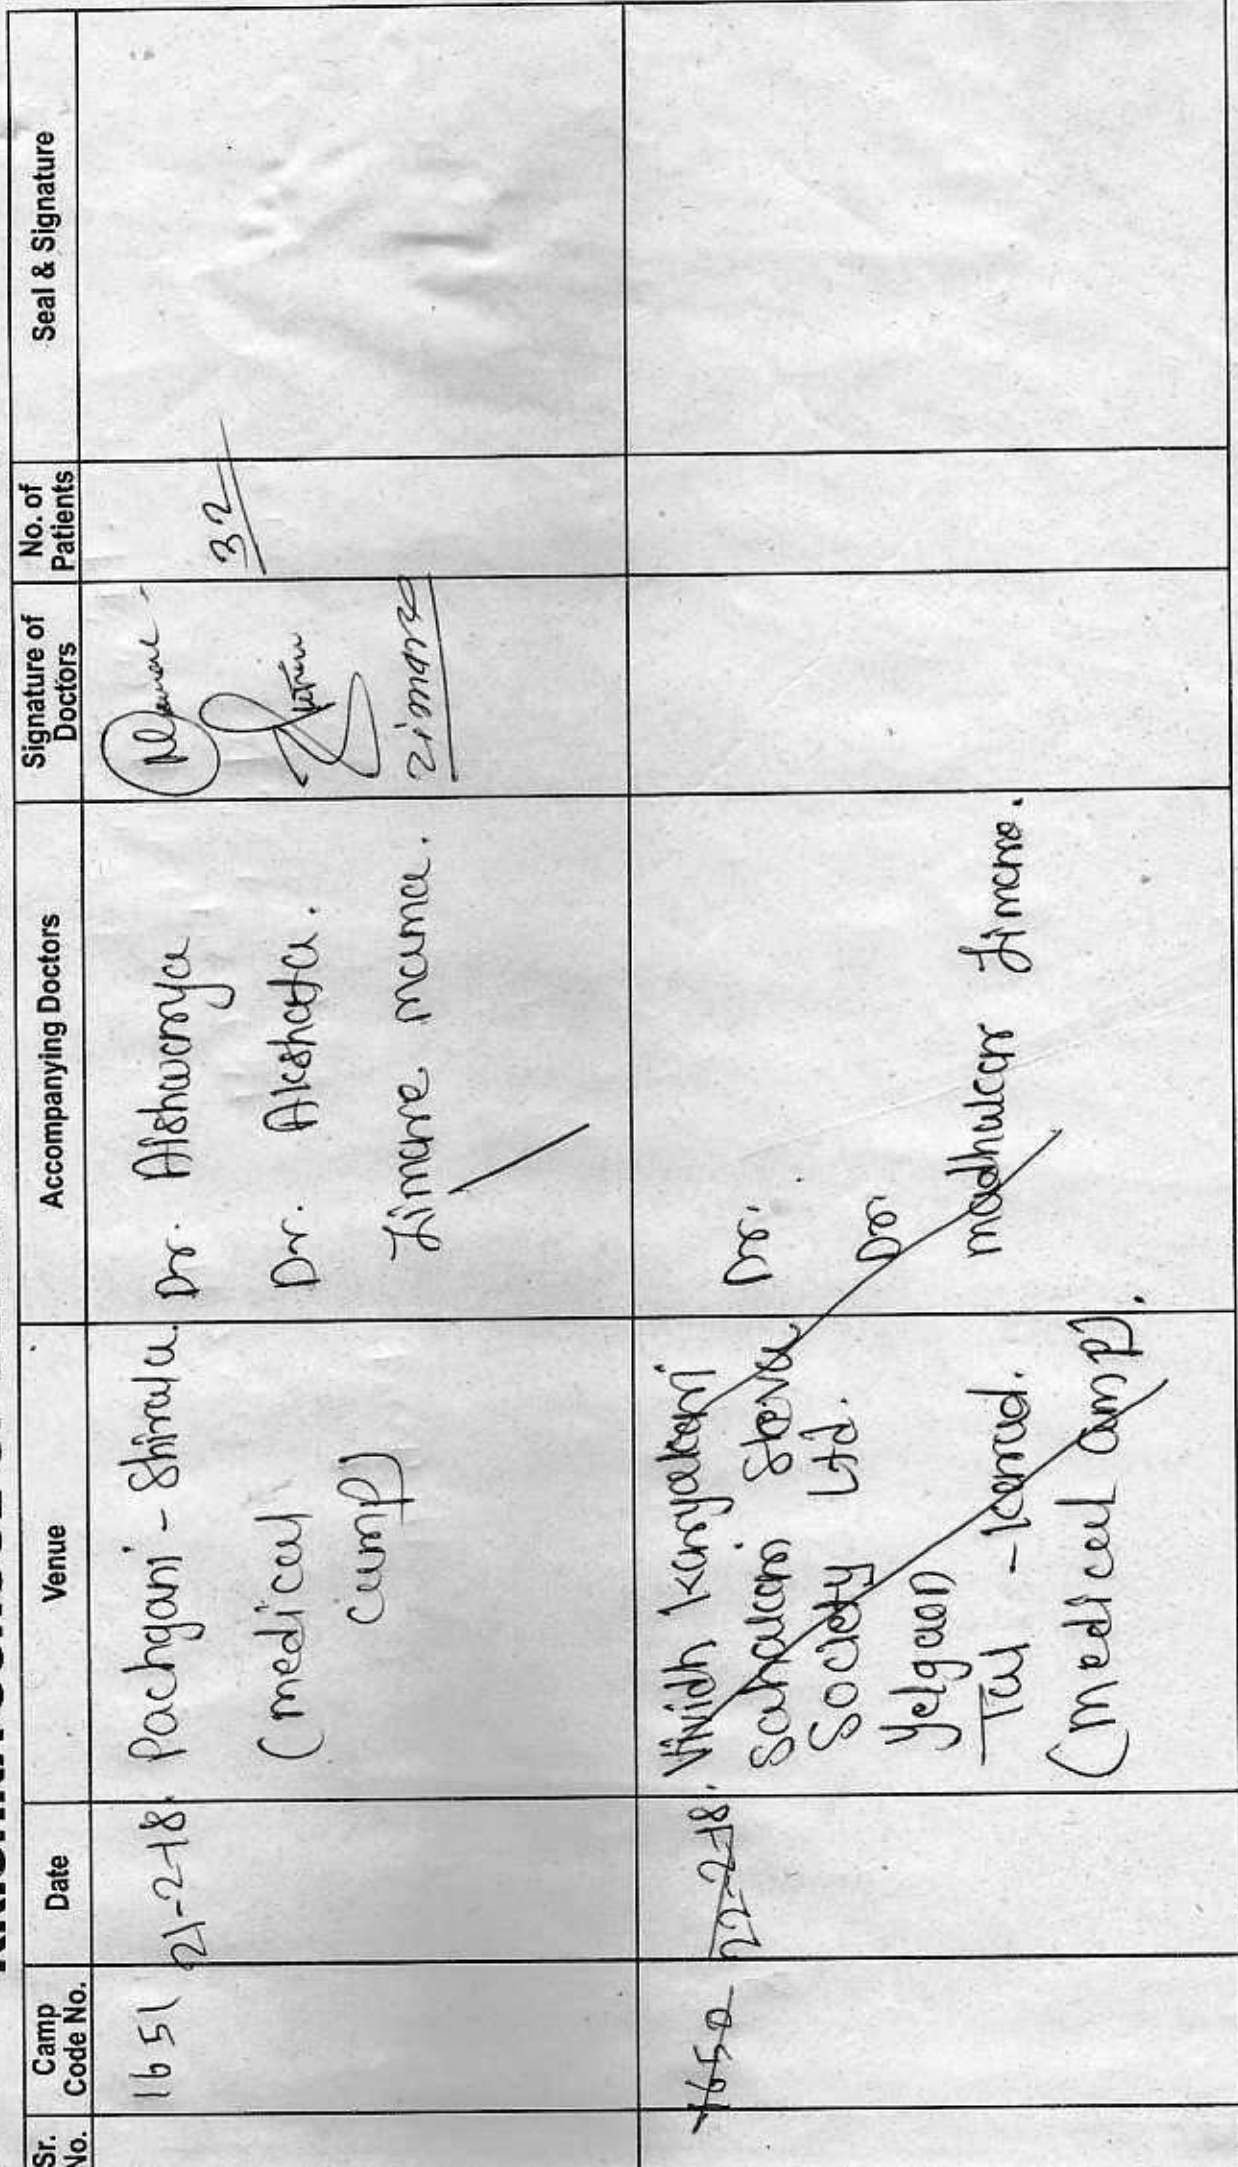 Sr. No.
Camp Code No.
Date
Venue
Accompanying Doctors
Signature of Doctors
No. of Patients
Seal & Signature
1651
21-2-18.
Pachgani - Shirala.
(medical
camp)
Dr. Aishwarya
Dr. Akshata.
Zimare mama.
32
1652
22-2-18.
Vividh karyakari
Sahakari Seva
Society Ltd.
Yelgaon
Tal - Karad.
(medical camp).
Dr.
Dr.
madhukar Zimare.